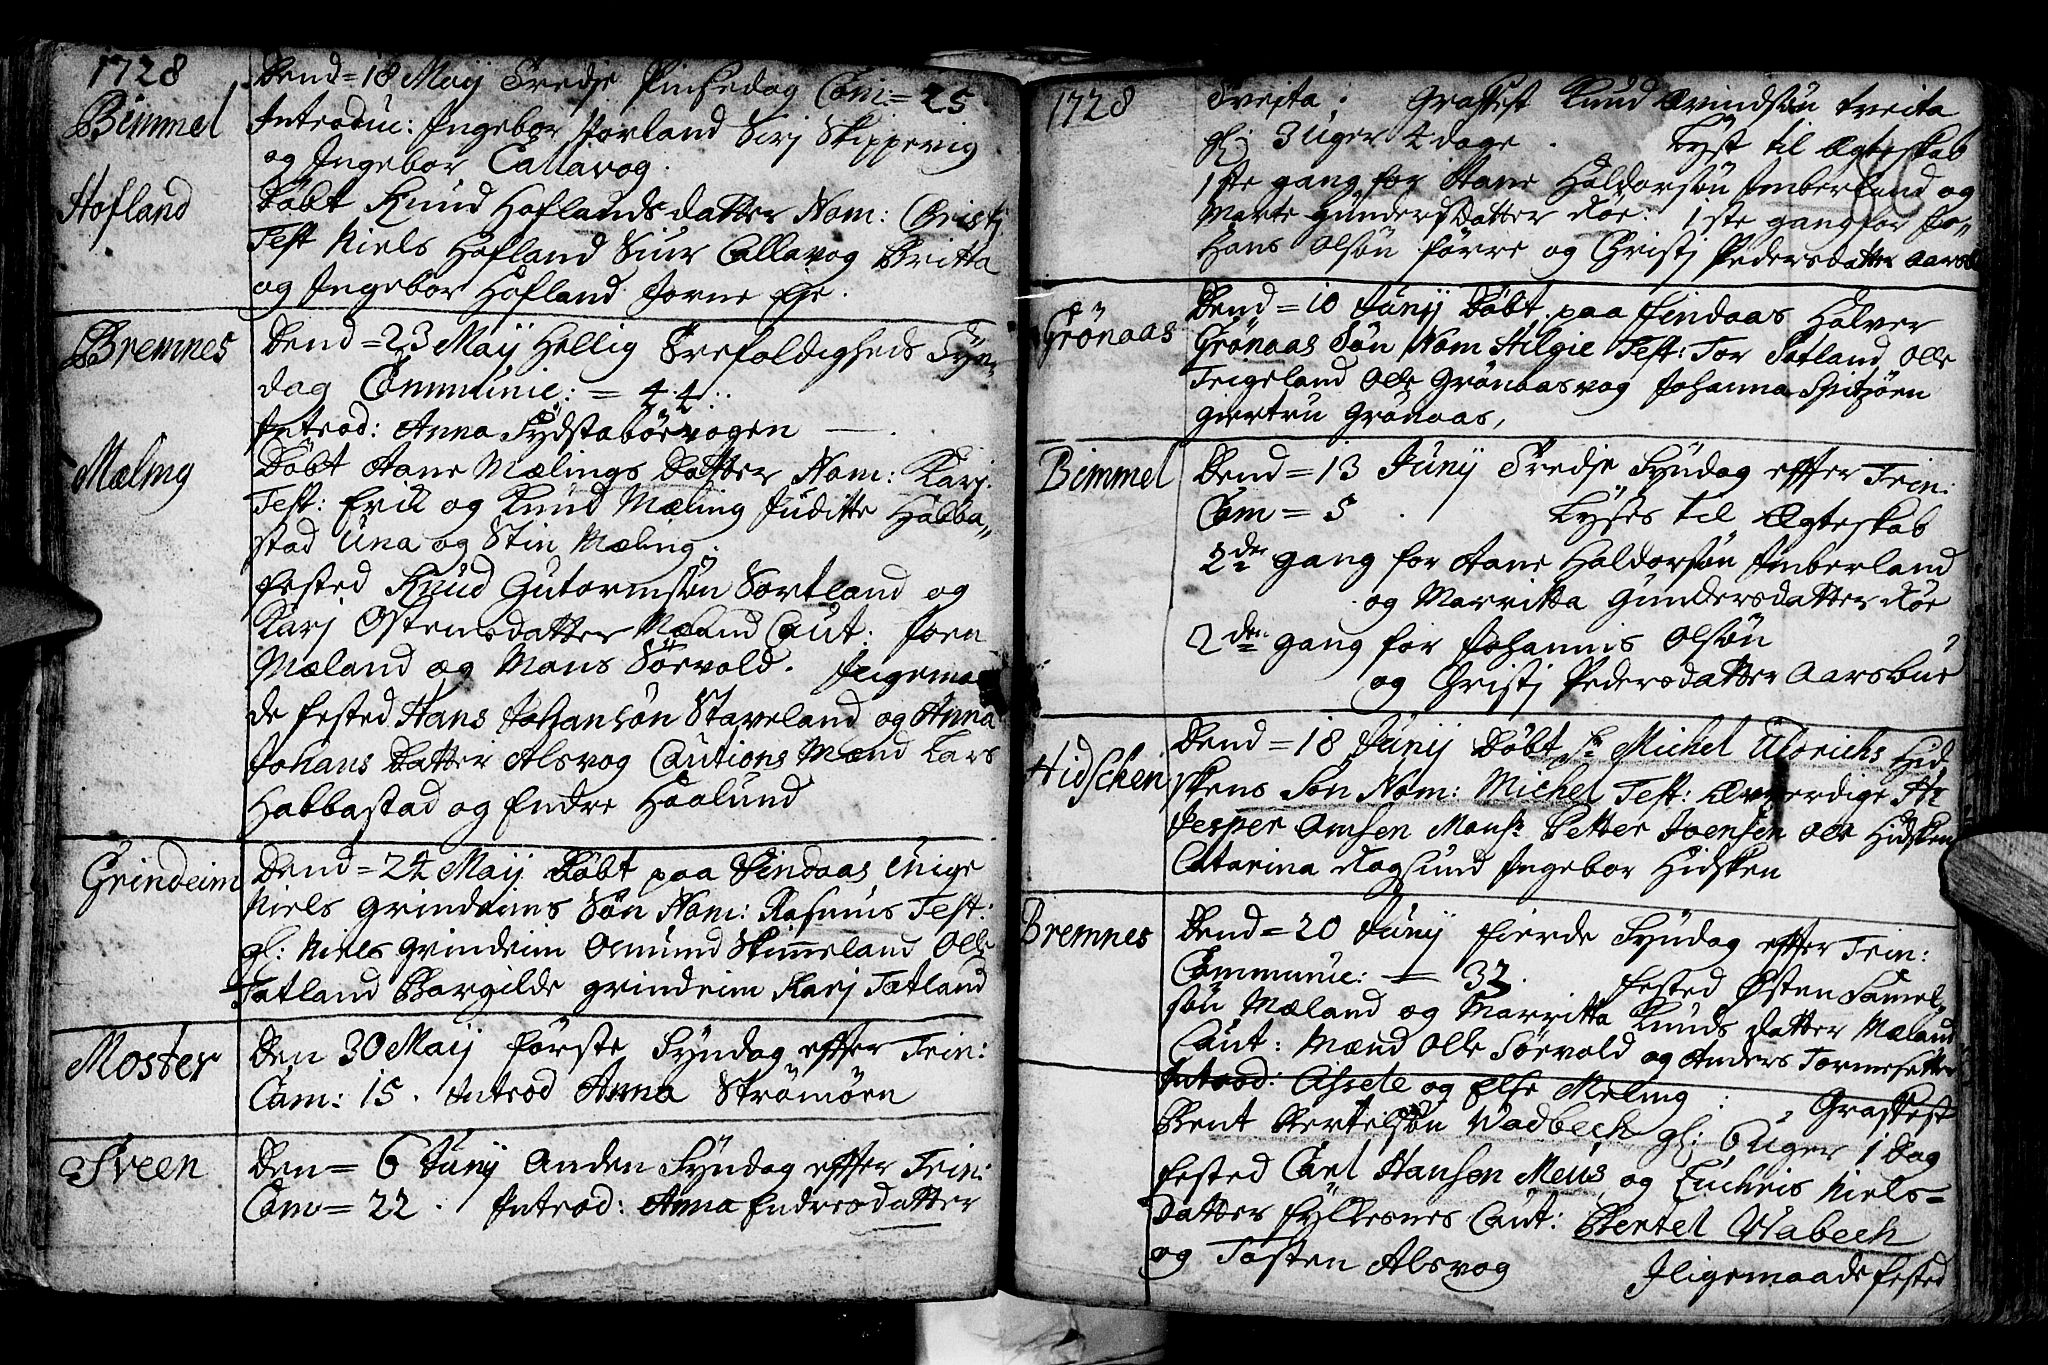 1728
Bimmel
Dend = 18 Maij Tredje Pinsedag Com: = 25
Introduc: Ingebor Vorland Siri Skippevig
og Ingebor Callavog.
Hofland
Döbt Knud Hoflands datter Nom: Cristj
Test Niels Hofland Siur Callavog Britta
og Ingebor Hofland Jorne Eje.
Bremnes
Dend = 23 Maij Hellig Trefoldigheds Syn„
dag Communic: = 44:.
Introd: Anna Sydstabövogen
Mæling
Döbt Aane Mælings Datter Nom: Karj
Test: Erik og Knud Mæling Juditte Habba„
stad Una og Stin Mæling.
Fested Knud Gutormsön Sortland og
Karj Ostensdatter Mæland Caut: Joen
Mæland og Mons Sörvold. Jligemaa
de fested Hans Johansön Staveland og Anna
Johans Datter Alsvog Cautions Mænd Lars
Habbastad og Endre Haalund
Grindeim
Dend = 24 Maij Döbt paa Vindaas Unige
Niels Grindeims Sön Nom: Rasmus Test:
gl: Niels Grindeim Asmund Skimeland Olle
Tatland Borgilde Grindeim Karj Tatland
Moster
Den 30 Maij förste Syndag effter Trin:
Com: 15. Introd Anna Strömöen
Sveen
Den = 6 Junij Anden Syndag effter Trin:
Com = 22. Introd: Anna Endresdatter
1728
Tveita: Graffest Knud Evindsön Tveita
gl: 3 Uger 4 dage. Lyst til Ægteskab
1ste gang for Aane Haldorsön Imberland og
Marte Gunders Datter Röe: 1ste gang for Jo„
Hans Olsön Förre og Christj Pedersdatter Aarsb
Grönaas
Dend = 10 Junij Döbt paa Findaas Halver
Grönaas Sön Nom Hilgie Test: Tor Tatland, Olle
Teigeland Olle Grönaasvog Johanna Spitzöen
Giertru Grönaas,
Bimmel
Dend = 13 Junij Tredje Syndag effter Trin:
Com = 5. Lyses til Ægteskab
2den gang for Aane Haldorsön Imberland
og Marritta Gundersdatter Röe
2den gang for Johannis Olsön
og Christj Pedersdatter Aarsbue
Hidschen
Dend = 18 Junij Döbt Sr Michel Ulorichs Hid„
skens Sön Nom: Michel Test: Ærværdige Hr
Jesper Amsen Monsr Petter Ivensen Ole Hidsken
Catarina Rogsund Ingebor Hidsken
Bremnes
Dend = 20 Junij Fierde Syndag effter Trin:
Communic: = 33. Fested Østen Samel„
sön Mæland og Marritta Knuds datter Mæland
Caut: Mænd Olle Sörvold og Anders Tormesetter
Introd: Assele og Else Meling: Graffest
Bent Bertelsön Wadbech gl: 6 Uger 1 Dag
Fested Carl Hansen Meus og Luchris Niels=
Datter Fyllesnes Caut: Bertel Wabech
og Tosten Alsvog Jligemaade fested